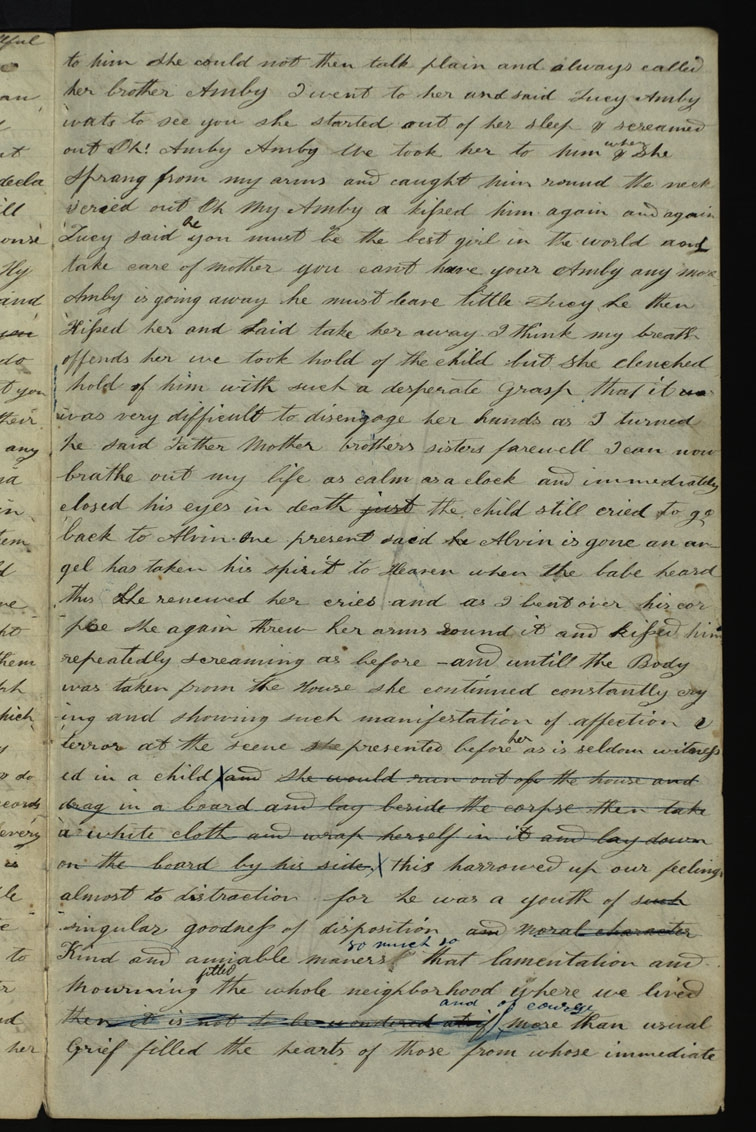 to him she could not then talk plain and always called
her brother Amby I went to her and said Lucy Amby
wats to see you she started out of her sleep & screamed
out Oh! Amby Amby We took her to him & when she
sprang from my arms and caught him round the neck
& cried out Oh My Amby & kissed him again and again
Lucy said he you must be the best girl in the world and
take care of mother you cant have your Amby any more
Amby is going away he must leave little Lucy he then
Kissed her and said take her away I think my breath
offends her we took hold of the child but she clenched
hold of him with such a desperate grasp that it
was very difficult to disengage her hands as I turned
he said Father Mother brothers sisters farewell I can now
brathe out my life as calm as a clock and immediately
closed his eyes in death just the child still cried to go
back to Alvin one present said he Alvin is gone an an
gel has taken his spirit to Heaven when the babe heard
this she renewed her cries and as I bent over his cor
pse she again threw her arms round it and kissed him
repeatedly screaming as before - and untill the Body
was taken from the House she continued constantly cry
ing and showing such manifestation of affection &
terror at the scene she presented before her as is seldom witness
ed in a child X and she would run out of the house and
drag in a board and lay beside the corpse then take
a white cloth and wrap herself in it and lay down
on the board by his side X this harrowed up our feelings
almost to distraction for he was a youth of such
singular goodness of disposition and moral character
Kind and amiable maners so much so that lamentation and
Mourning filled the whole neighborhood where we lived
then it is not to be wondered at if and of course more than usual
Grief filled the hearts of those from whose immediate